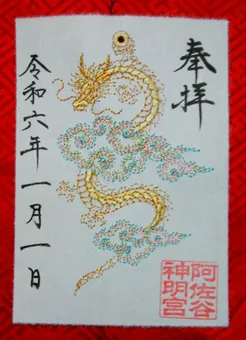 奉拝
令和六年一月一日
阿佐谷
神明宮